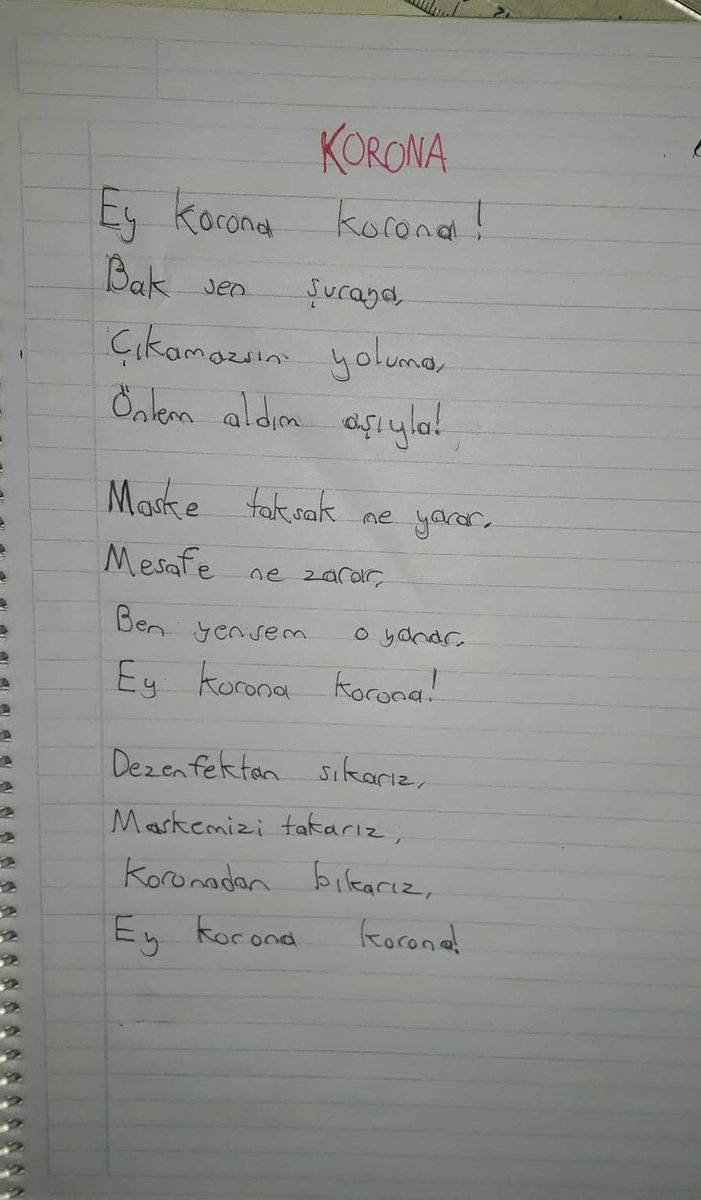 KORONA
Ey korona korona!
Bak sen şuraya,
Çıkamazsın yoluma,
Önlem aldım aşıyla!
Maske taksak ne yarar,
Mesafe ne zarar,
Ben yensem o yanar,
Ey korona korona!
Dezenfektan sıkarız,
Maskemizi takarız,
Koronadan bıkarız,
Ey korona korona!